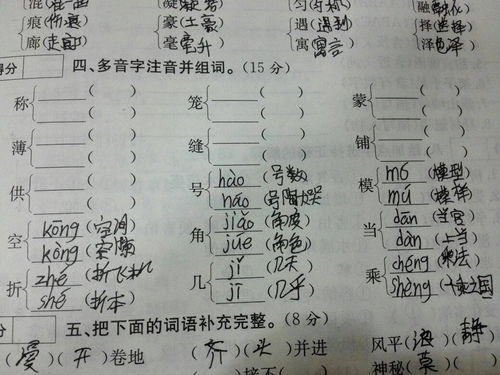 混 凝 匀 融(融化)
痕(伤痕) 豪(土豪) 遇(遇到) 择(选择)
廊(走廊) 毫(毫升) 寓(寓言) 泽(色泽)
得分 四、多音字注音并组词。(15分)
称 ( ) ( ) 笼 ( ) ( ) 蒙 ( ) ( )
薄 ( ) ( ) 缝 ( ) ( ) 铺 ( ) ( )
供 ( ) ( ) 号 hào (号数) 模 mó (模型)
háo (号啕大哭) mú (模样)
空 kōng (空间) 角 jiǎo (角度) 当 dān (当官)
kòng (空隙) jué (角色) dàn (上当)
折 zhé (折飞机) 几 jǐ (几天) 乘 chéng (乘法)
shé (折本) jī (几乎) shèng (千乘之国)
分 五、把下面的词语补充完整。(8分)
(漫)(开)卷地 (齐)(头)并进 风平(浪)(静)
神秘(莫)(